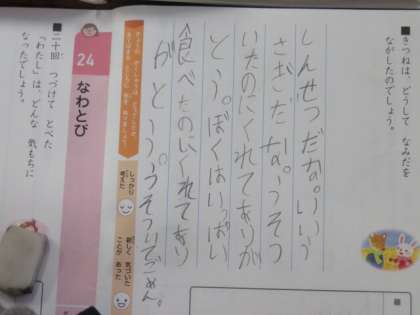 ■きつねは、どうして なみだを
ながしたのでしょう。
しんせつだな。いいう
さぎだな。うそつ
いたのにくれてありが
とう。ぼくはいっぱい
食べたのにくれてあり
がとう。うそついてごめん。
しっかり
考えた
新しく 気づいた
ことが あった
24
なわとび
■二十回 つづけて とべた
「わたし」は、どんな 気もちに
なったでしょう。